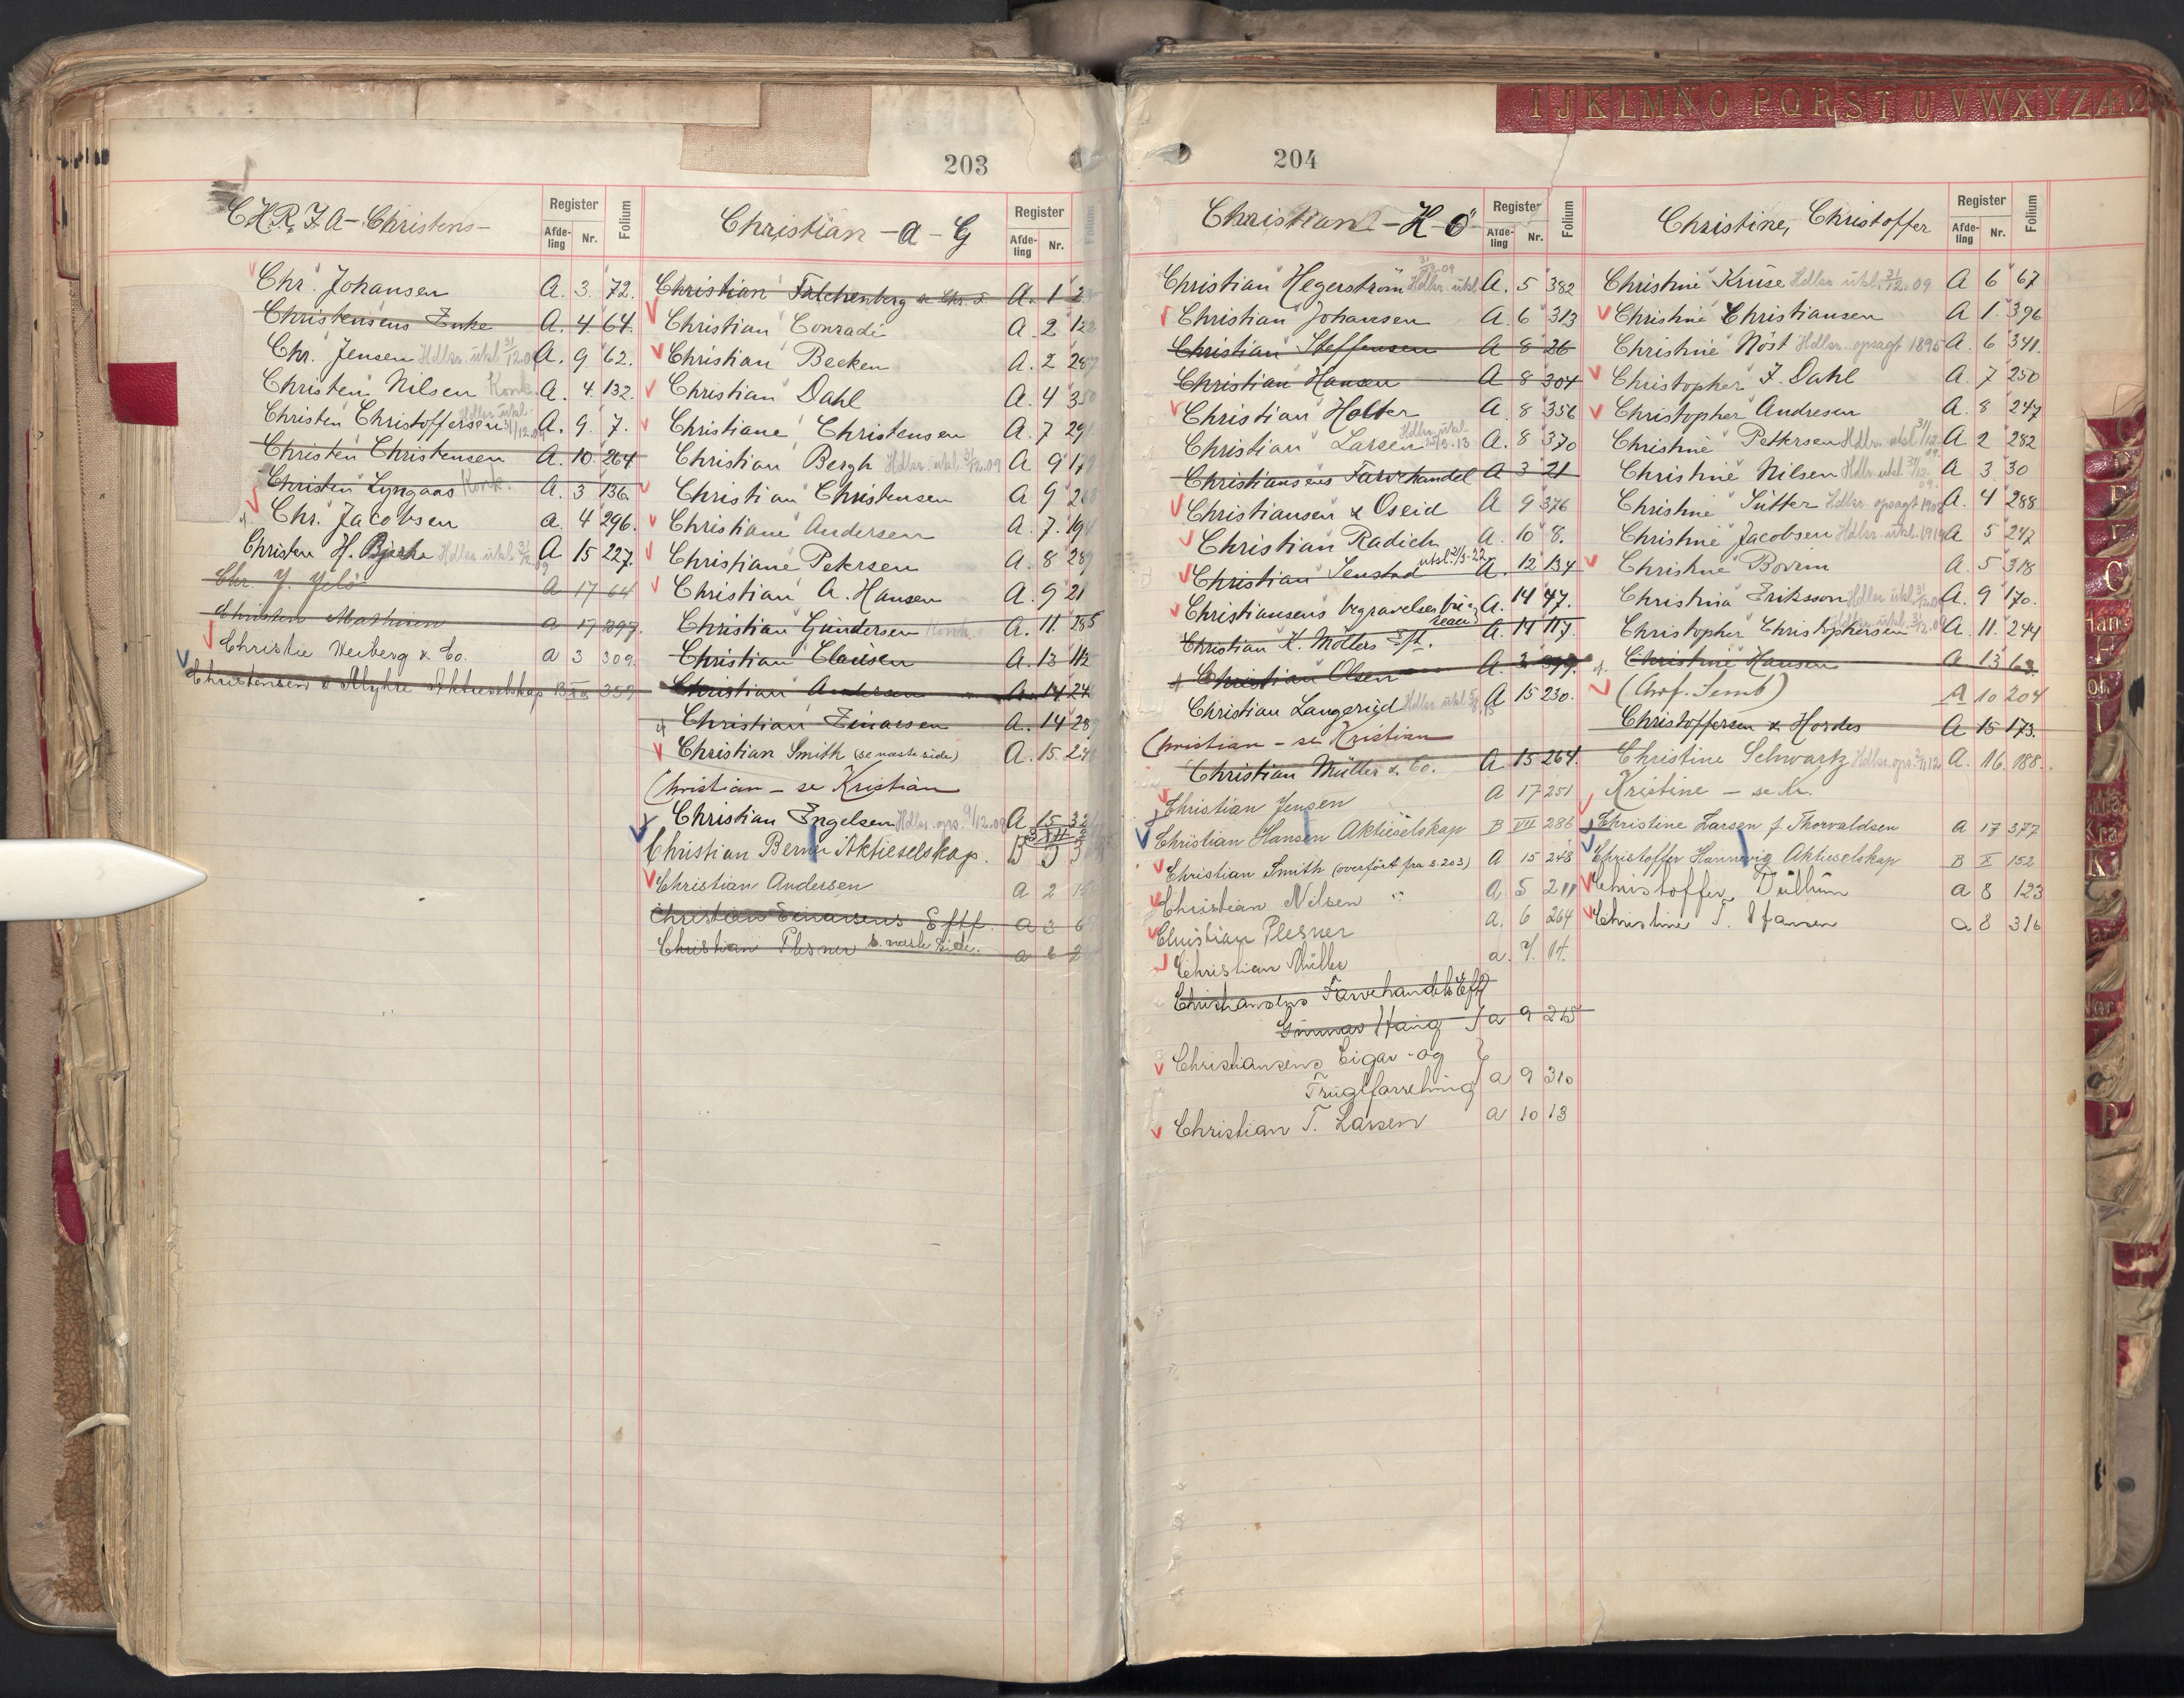 I J K L M N O P Q R S T U V W X Y Z Æ Ø
203
CHR. F. A - Christens-
Register
Afde-ling Nr. Folium
Chr. Johansen A. 3. 72.
Christensens Enke A. 4 64.
Chr. Jensen Hdlsr. utsl. 31/12.09 A. 9. 62.
Christen Nilsen Konk. A. 4. 132.
Christen Christoffersen Hdlsr. utsl. 31/12.09 A. 9. 7.
Christen Christensen A. 10. 264
Christen Lyngaas Konk. A. 3 136
Chr. Jacobsen a. 4 296.
Christen H. Bjerke Hdlsr. utsl. 31/12.09 A 15 227.
Chr. Y. Yelö A 17 64
Christen Mathisen a 17 297.
Christie Heiberg & Co. a 3 309.
Christensen & Myhre Aktieselskap B 359
Christian - A - G
Register
Afde-ling Nr. Folium
Christian Falchenberg A. 1 2
Christian Conradi A. 2 12
Christian Becken A. 2 28
Christian Dahl A. 4 35
Christiane Christensen A. 7 29
Christian Bergh Hdlsr. utsl. 31/12.09 A 9 17
Christian Christensen A 9 2
Christiane Andersen A. 7. 19
Christiane Petersen A. 8 28
Christian A. Hansen A. 9 21
Christian Gundersen Konk. A. 11. 285
Christian Clausen A. 13 112
Christian Andersen A. 14 24
Christian Einarsen A. 14 28
Christian Smith (se næste side) A. 15. 24
Christian - se Kristian
Christian Engelsen Hdlsr. ops. 9/12.09 A 15 32
Christian Berner Aktieselskap. B
Christian Andersen a 2 1
Christian Einarsens Eftf. a 3 6
Christian Plesner s. næste side. a 6 2
204
Christian - H - Ö
Register
Afde-ling Nr. Folium
Christian Hegerström Hdlsr. utsl. 31/12.09 A. 5 382
Christian Johansen A. 6 313
Christian Steffensen A 8 26
Christian Hansen A 8 304
Christian Holter A. 8 356
Christian Larsen Hdlsr. utsl. 13 A. 8 370
Christiansens Farvehandel A 3 21
Christiansen & Oseid A 9 376
Christian Radich A. 10 8.
Christian Senstad utsl. 21/3-22 A. 12 134
Christiansens begravelsesbureau A. 14 47.
Christian K. Mollers Eft. A. 14 117.
Christian Olsen A. 3
Christian Langerud Hdlsr. utsl. A 15 230.
Christian - se Kristian
Christian Müller & Co. A 15 264.
Christian Jensen A 17 251
Christian Hansen Aktieselskap B VII 286
Christian Smith (overført fra s. 203) A 15 248
Christian Nilsen a. 5 211
Christian Plesner a. 6 264
Christian Müller a. 7. 14.
Christiansens Farvehandels Eftf
Gunnar Haug a 9 215
Christiansens Cigar- og
Frugtforretning a 9 310
Christian T. Larsen a 10 13
Christine, Christoffer
Register
Afde-ling Nr. Folium
Christine Kruse Hdlsr. utsl. 31/12.09 A 6 67
Christine Christiansen A 1. 396
Christine Nöst Hdlsr. opsagt 1895 A. 6 341.
Christopher F. Dahl A. 7 250
Christopher Andresen A. 8 247
Christine Pettersen Hdlsr. utsl 31/12.09. A 2 282
Christine Nilsen Hdlr. utsl. 31/12.09. A 3 30
Christine Sutter Hdlsr. opsagt 1908 A. 4 288
Christine Jacobsen Hdlsr. utsl. 1914 A 5 247
Christine Bovim A. 5 318
Christina Eriksson Hdlsr. utsl. 31/12.09 A. 9 170.
Christopher Christophersen Hdlsr. utsl. 31/12.09 A. 11. 244
Christine Hansen A 13 63.
(Chof. Semb) A 10 204
Christoffersen & Hordes A 15 173.
Christine Schwartz Hdlsr. ops. 12 A. 16. 188.
Kristine - se K.
Christine Larsen f. Thorvaldsen A 17 377
Christoffer Hannevig Aktieselskap B X 152
Christoffer Dullum a 8 123
Christine T. Hansen a 8 316